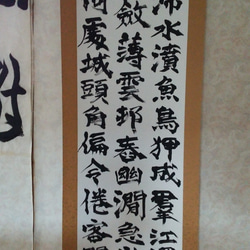 水濆魚鳥狎成羣江
斂薄雲邨舂幽澗急
何處城頭角偏令倦客